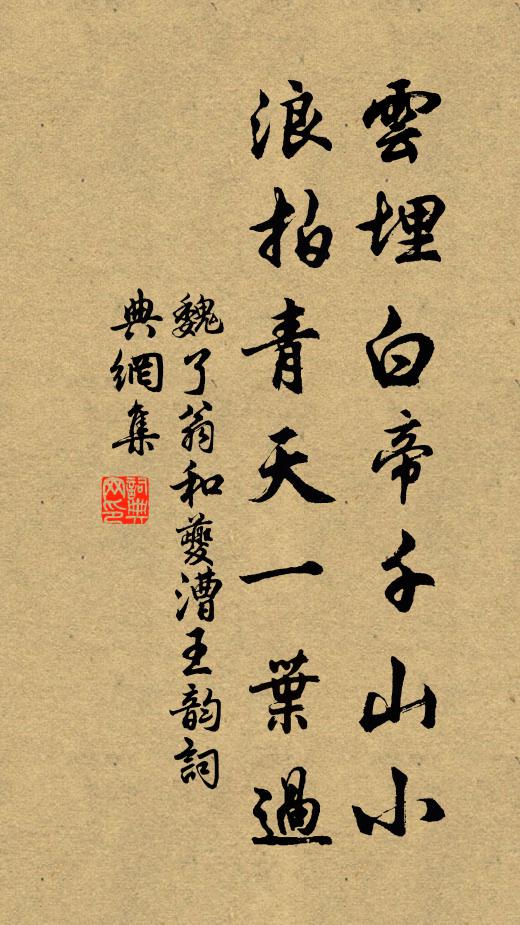 雲埋白帝千山小
浪拍青天一葉過
魏了翁和夔漕王韵詞
典網集
詞典网印